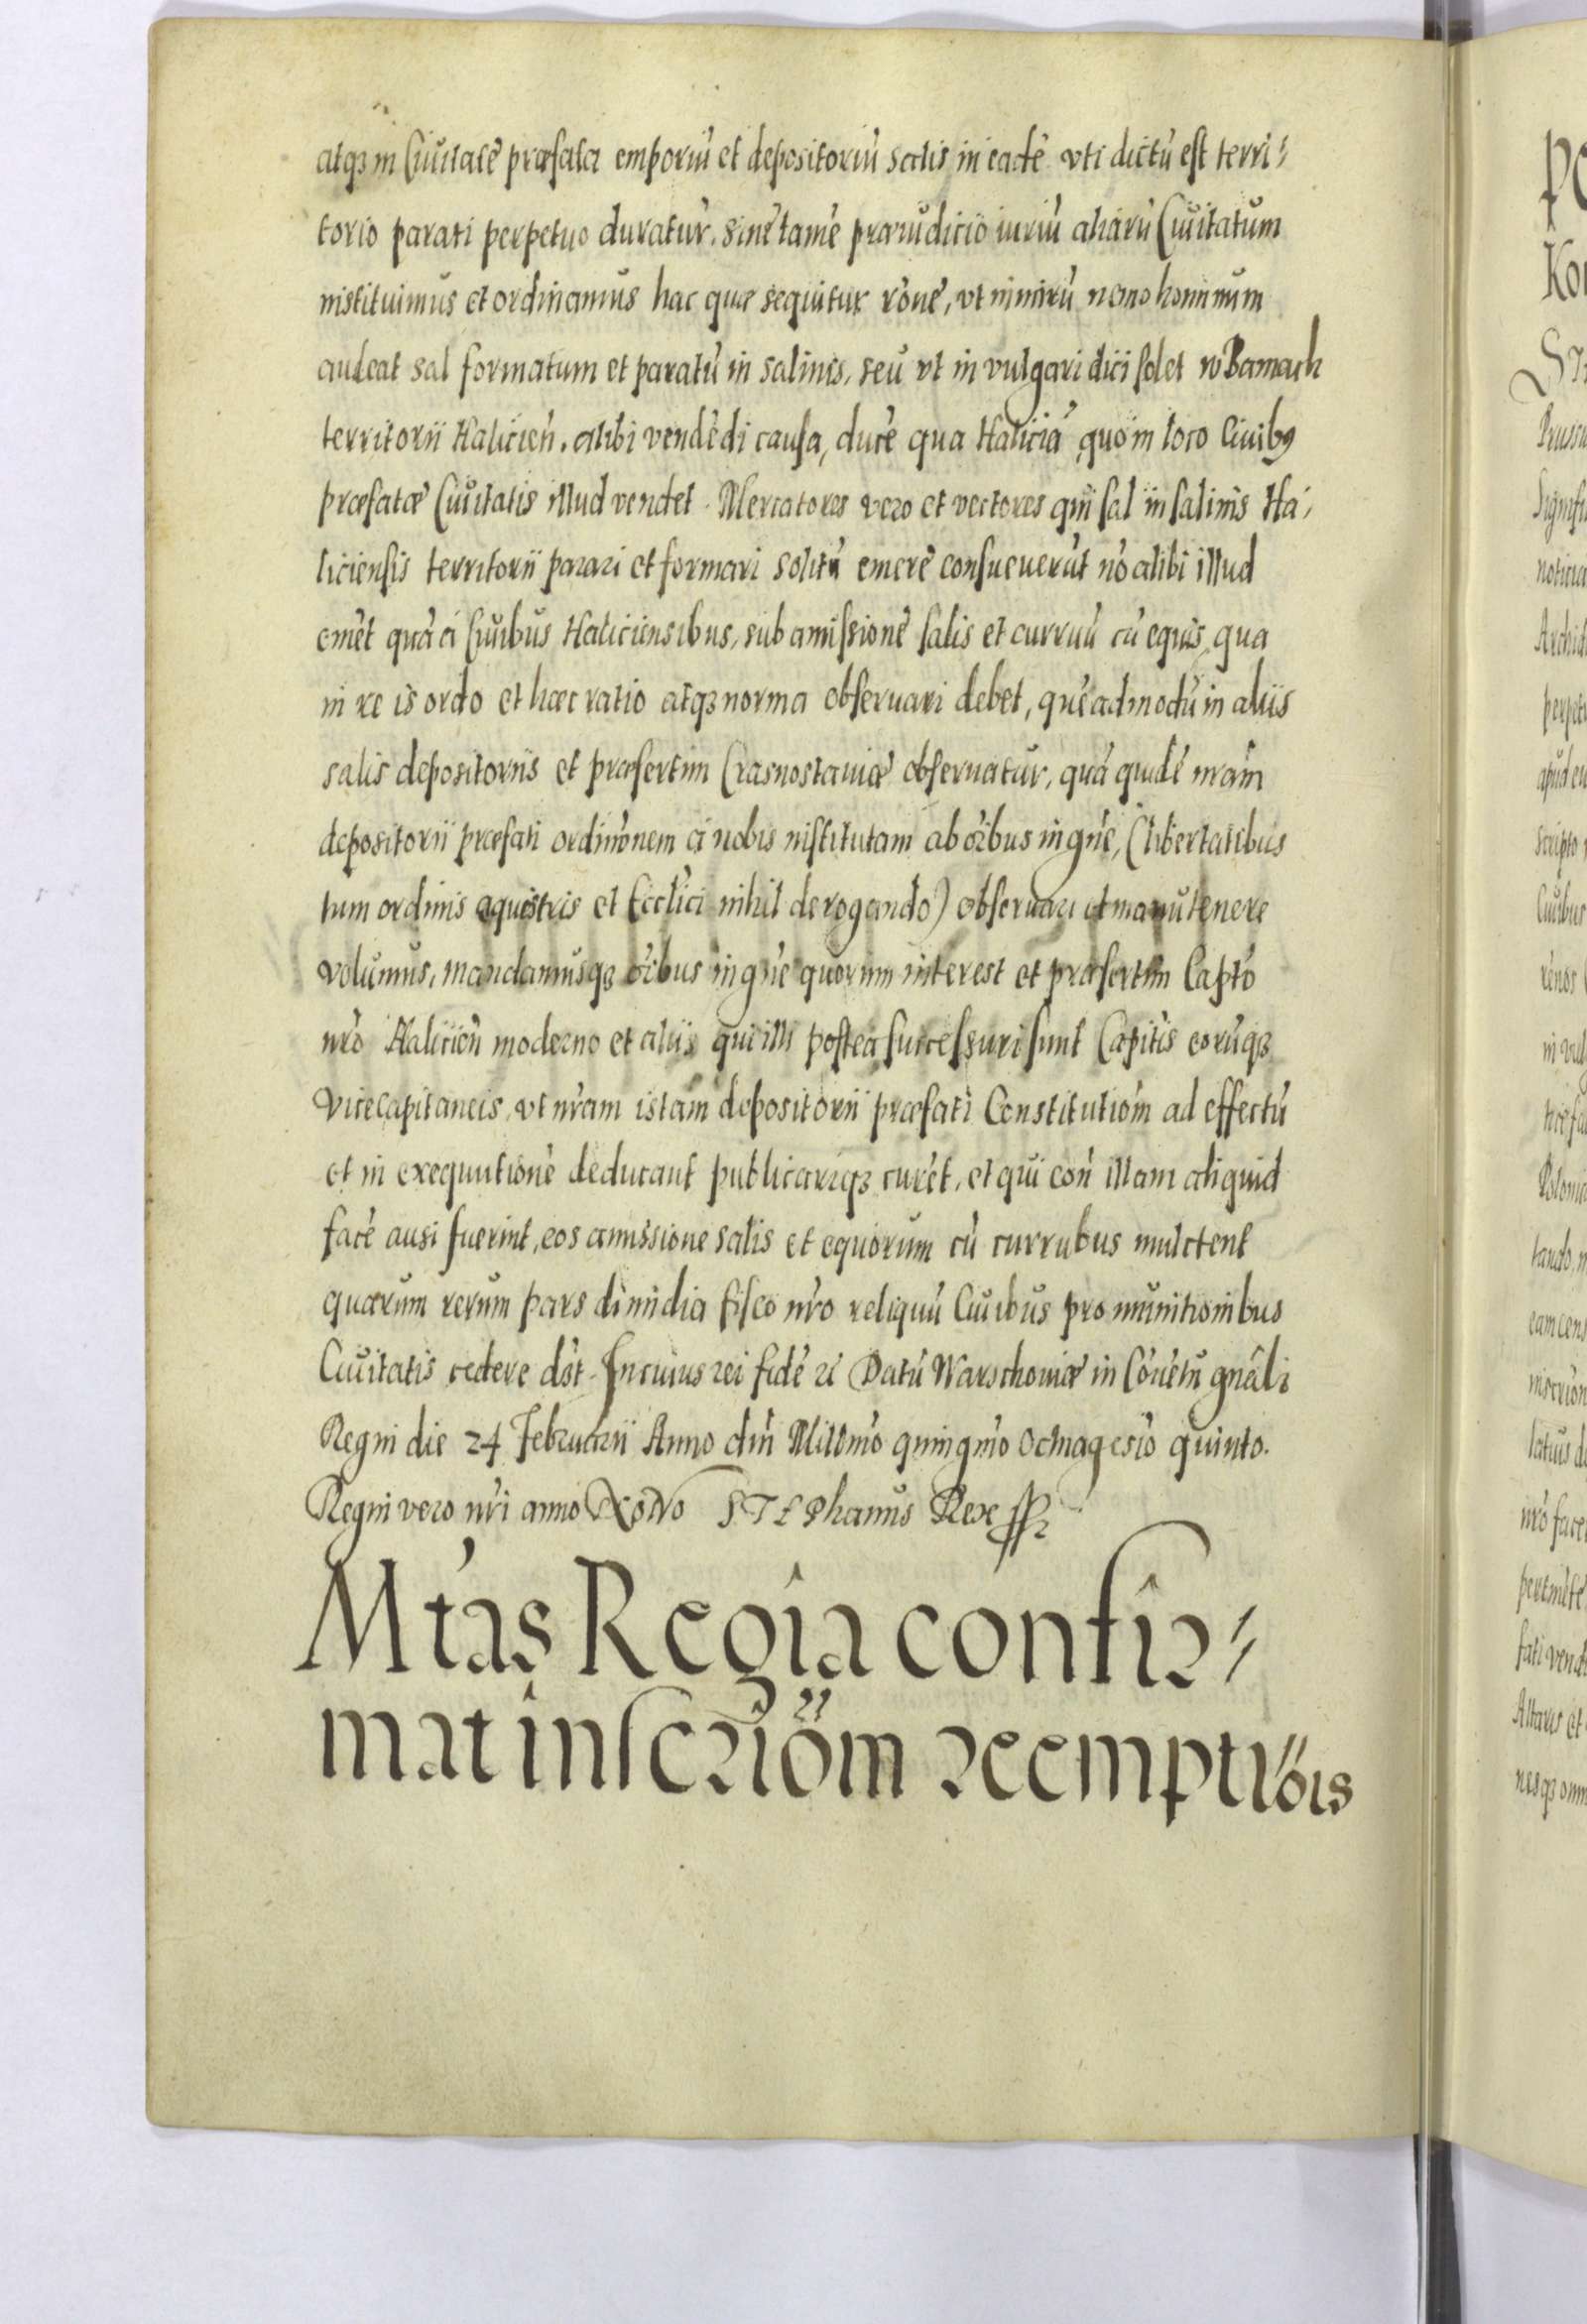 atq3 in Ciuitatē præfata emporiū et depositoriū salis in eadē vti dictū est terri⸗
torio parati perpetuo duratur. sine tamē præiudicio iuriū aliarū Ciuitatum
instituimus et ordinamus hac quæ sequitur rōne, vt nimirū nemo hominum
audeat sal formatum et paratū in salinis, seu vt in vulgari dici solet w Bamach
territorii Halicień. alibi vendēdi causa, ducē qua Haliciā quo in loco Ciuibꝰ
præfatæ Ciuitatis illud vendet. Mercatores vero et vectores qui sal in salinis Ha⸗
liciensis territorii parari et formari solitū emere consueuerūt nō alibi illud
emēt quā a Ciuibus Haliciensibus, sub amissione salis et curruū cū equis, qua
in re is ordo et hæc ratio atq3 norma obseruari debet, quēadmodū in aliis
salis depositoriis et præsertim Crasnostauiæ obseruatur, quā quidē nrām
depositorii præfati ordinōnem a nobis institutam ab oībus in gn̄e, (libertatibus
tum ordinis equestris et Eccl̄ici nihil derogando) obseruari et manutenere
volumus, mandamusq3 oībus in gn̄e quorum interest et præsertim Capt̄o
nrō Halicień moderno et aliis qui illi postea successuri sunt Capitīs eorūq3
Vicecapitaneis, vt nrām istam depositorii præfati Constitutiōm ad effectū
et in exequutionē deducant publicariq3 curēt, et qui coń illam aliquid
facē ausi fuerint, eos amissione salis et equorum cū curribus mulctent
quarum rerum pars dimidia fisco nrō reliquū Ciuibus pro munitionibus
Ciuitatis cedere dēt. In cuius rei fidē zc̄ Datū Warschouiæ in Cōuetū gnāli
Regni die 24 Februarii Anno dn̄i Millmō quingmō octuagesīo quinto.
Regni vero nrī anno Nono STEPhanus Rex ssz
Mtās Regia confir⸗
mat inscriōm reemptiōis